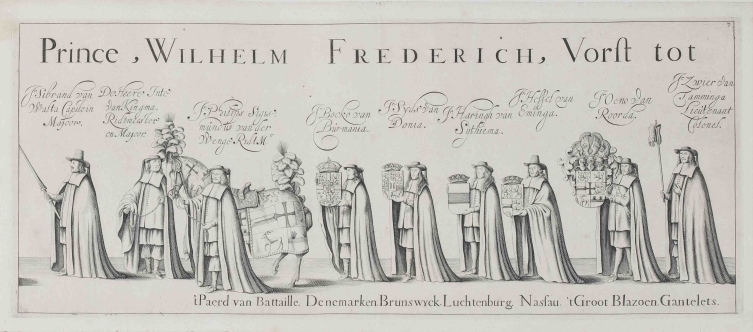 7
Prince, WILHELM FREDERICH, Vorst tot
J. Sibrand van
Walta Capitein
Majoor.
De Heere Inte
van Kingma.
Ridtmeester
en Majoor.
J. Philips Sigis-
mundus van der
Wenge Ridt Mr
J. Bocko van
Burmania.
J. Syds van
Donia.
J. Haringh van
Sythiema.
J. Hessel van
Eminga.
J. Veno van
Roorda.
J. Zwier van
Tamminga
Lieutenant
Colonel.
't Paerd van Battaille. Denemarken. Brunswyck. Luchtenburg. Nassau. 't Groot Blazoen. Gantelets.